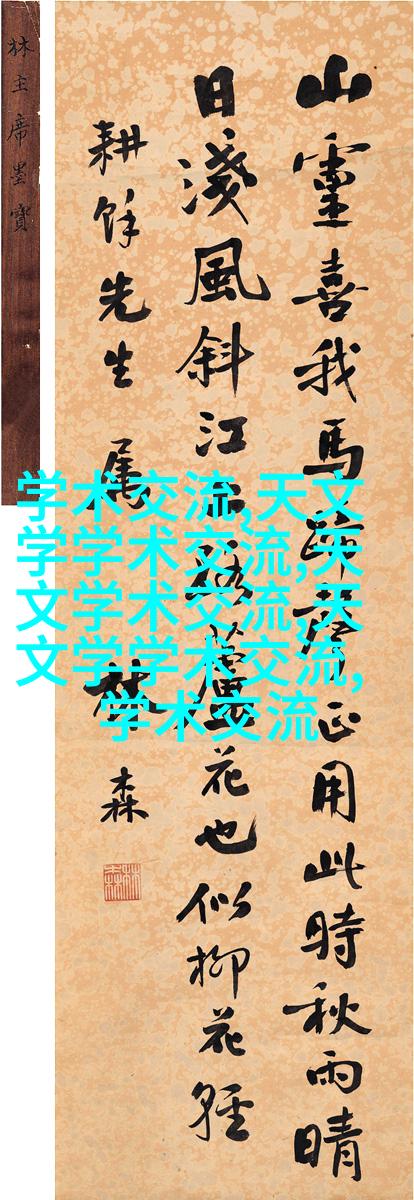 林主席墨寶
山靈喜我馬蹄聲正用此時秋雨晴
日淺風斜江路蘆花也似柳花輕
耕餘先生 属
林森
学术交流,天文
学学术交流,天
文学术交流,天
文学学术交流,
学术交流